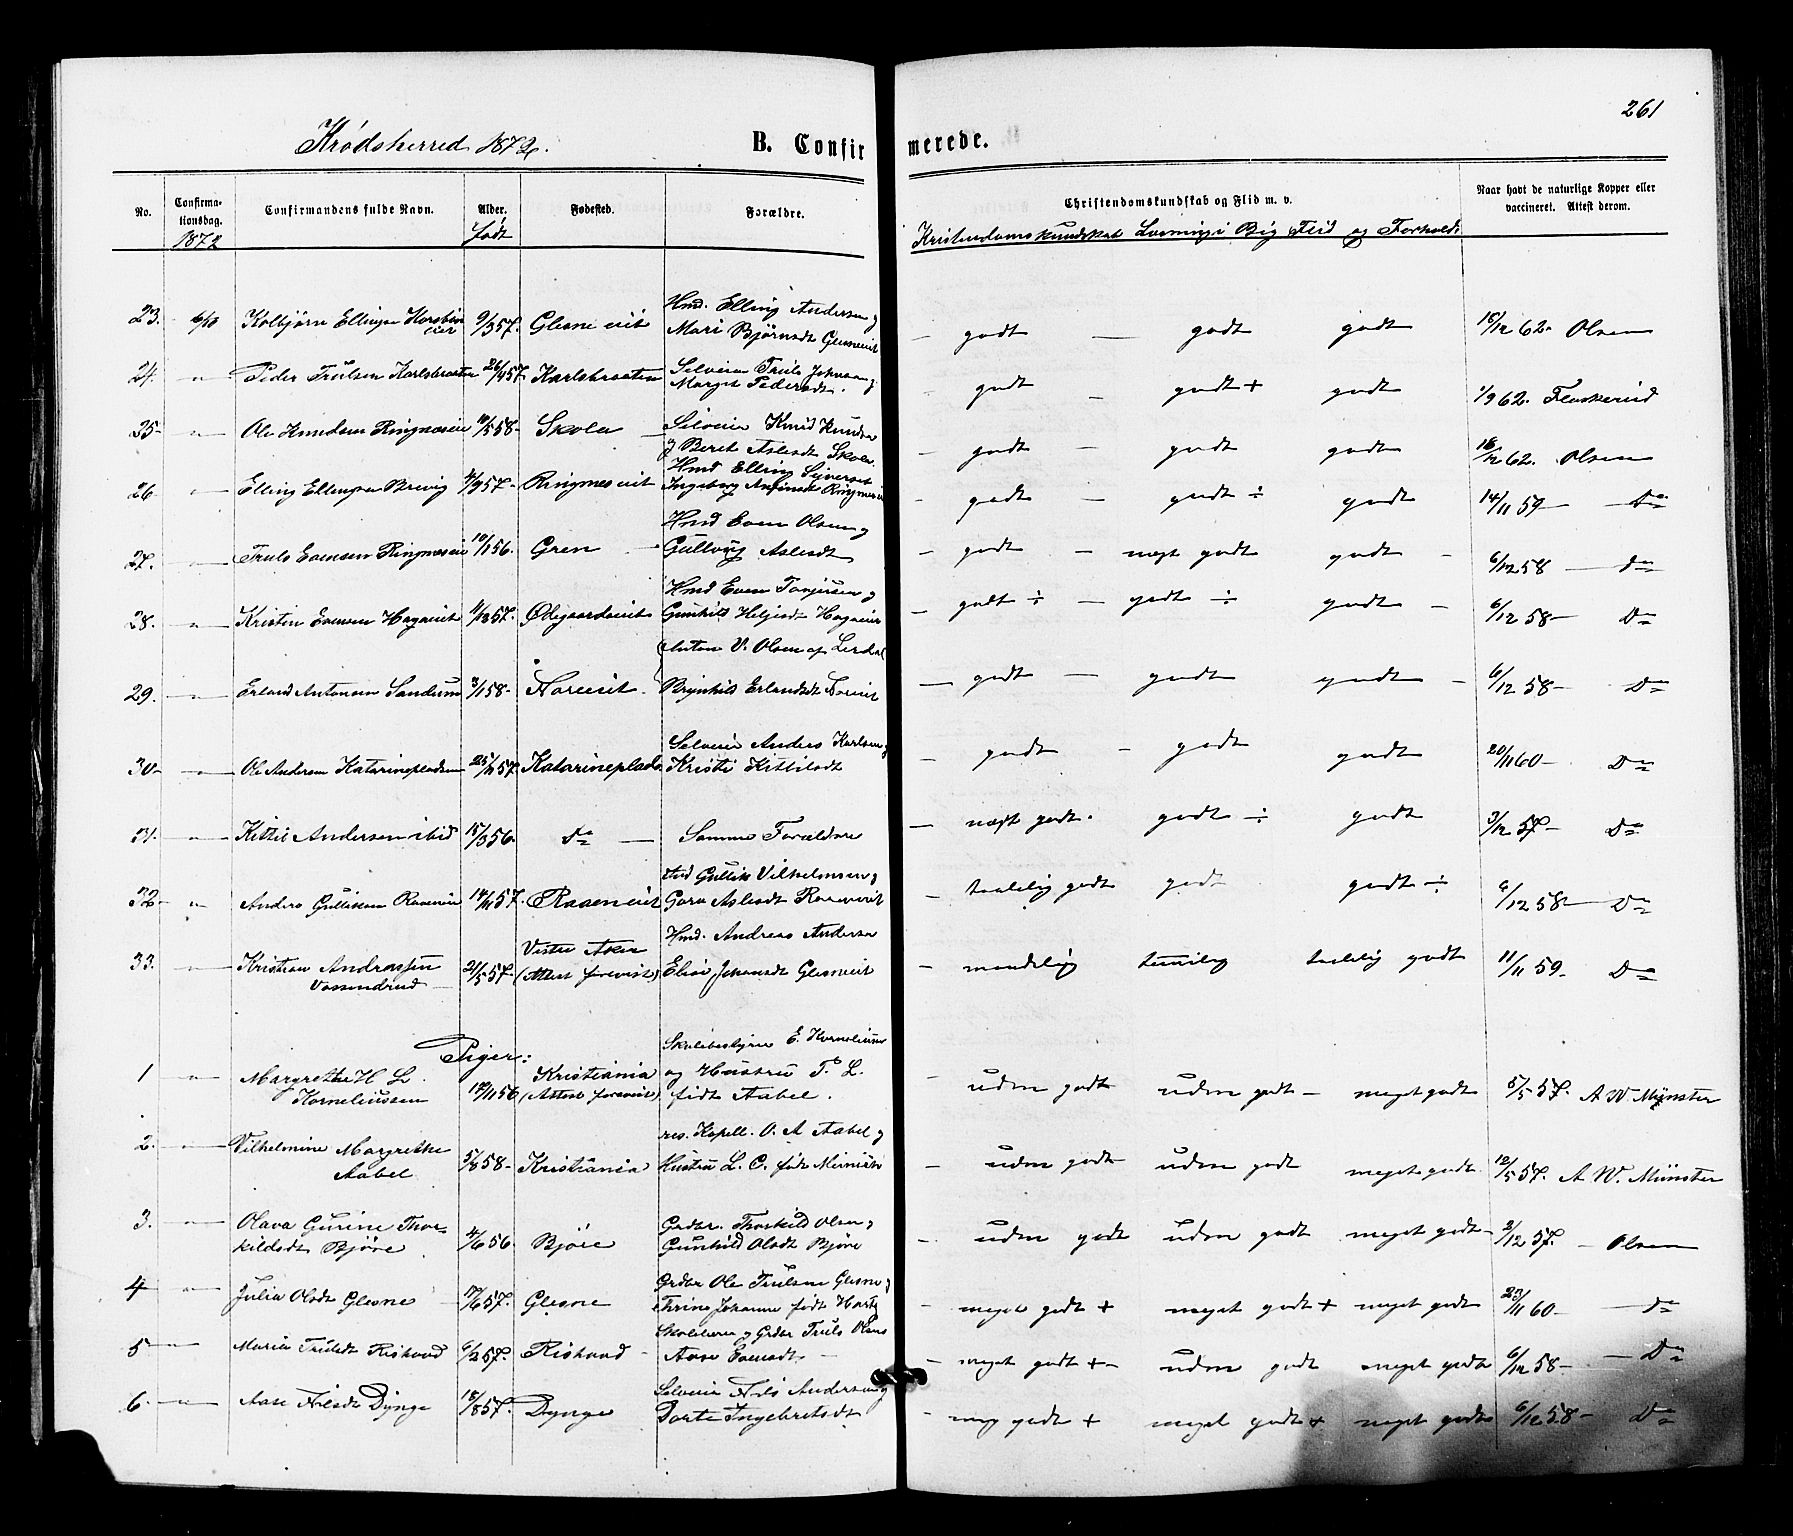 261
Krødsherred 1872.
B. Confirmerede.
No.
Confirmationsdag.
1872
Confirmandens fulde Navn.
Alder.
født
Fødested.
Forældre.
Christendomskundskab og Flid m. v.
Kristendomskundskab Læsning i Bog Flid og Forhold
Naar havt de naturlige Kopper eller vaccineret. Attest derom.
23. 6/10 Kolbjørn Ellingsen 9/3 57. Glesne eiet Hmd. Elling Andersen og
Mari Björnsdt Glesneeiet
— godt — godt godt 15/12 62. Olsen
24. " Peder Trulsen Karlsbraaten 26/4 57. Karlsbraaten Selveier Truls
Margit Pedersdt.
godt — godt + godt 1/9 62. Flaskerud
25. " Ole Knudsen Ringneseie 5 58. Skola Selveier Knud Knudsen
og Berit Aslesdt Skola.
— godt — godt godt 18/12 62. Olsen
26. " Elling Ellingsen Brevig 4/9 57. Ringnes eiet Hmd Elling Sjversen
Ingeborg
— godt — godt ÷ godt 14/11 59 — Do
27. " Truls Evensen Ringneseie 10/1 56. Gren Hmd Even Olsen og
Gullaug Aslesdt
— godt — megt godt godt — 6/12 58 — do
28. " Kristen Evensen Hagaeiet 57. Ødegaardseiet Hmd Even Torjusen og
Gunhild Helgesdt Hagaeie
— godt ÷ — godt ÷ godt — 6/12 58 — Do
29. " Erland Antonsen Sandum 3/1 58 Noreeiet. Anton V. Olsen af Lerdal
Brynhild Erlandsdt Noreeiet
— godt — godt godt — 6/12 58 — Do
30 " Ole Andersen Katarinepladsen 25/11 57. Katarineplads Selveier Anders Karlsen og
Kristi Kittilsdt
godt — godt godt 20/11 60 — Do
31. " Kittil Andersen ibid 15/3 56. Do — Samme Forældre
— någt godt. godt ÷ godt 3/12 57 — Do
32 " Anders Gulliksen Raaeneie 14/11 57. Raaen eiet Gullik Vilhelmsen og
Goro Aslesdt Raaeneiet
— taalelig godt godt godt ÷ 6/12 58 — Do
33. " Kristian Andreassen 21/5 57. Vestre Aker Hmd. Andreas Andersen
Vassendrud (Attest forevist) Elise Johansdt Glesneeiet
— maadelig temmelig taalelig godt 11/11 59 — Do
Piger:
1 " Margrethe H L. Kristiania Skolebestyrer E. Kornelius
Korneliussen 19/11 56 (Attest forevist) og Hustru T. L.
født Aabel.
— uden godt uden godt — meget godt 5/5 57. A W. Münster
2. " Vilhelmine Margrethe 5/8 58 — Kristiania res. Kapell. O. A Aabel og
Aabel Hustru L. C. født Münster
— uden godt uden godt meget godt 12/5 57. A W. Münster
3. " Olava Gurine Thorkildsdt Björe 4/6 56. Björe Grdbr. Thorkild Olsen og
Gunhild Olsdt Björe
— uden godt uden godt meget godt — 2/12 57. — Olsen
4 " Julia Olsdt Glesne 17/6 57. Glesne Grdbr Ole Trulsen Glesne og
Thrine Johanne født Hartz
— meget godt + meget godt + meget godt 23/11 60 — do
5 " Maria Trulsdt Riskaad 6/2 57. Riskaad Skolelærer og Grdbr Truls Olsens
Aase Evensdt —
— meget godt + — uden godt meget godt 6/12 58 — Do
6. " Aase Nilsdt Dynge 18/8 57. Dynge Selveier Nils Andersen og
Dorte Ingebretsdt
— meg godt + meget godt + meget godt 6/12 58 — Do